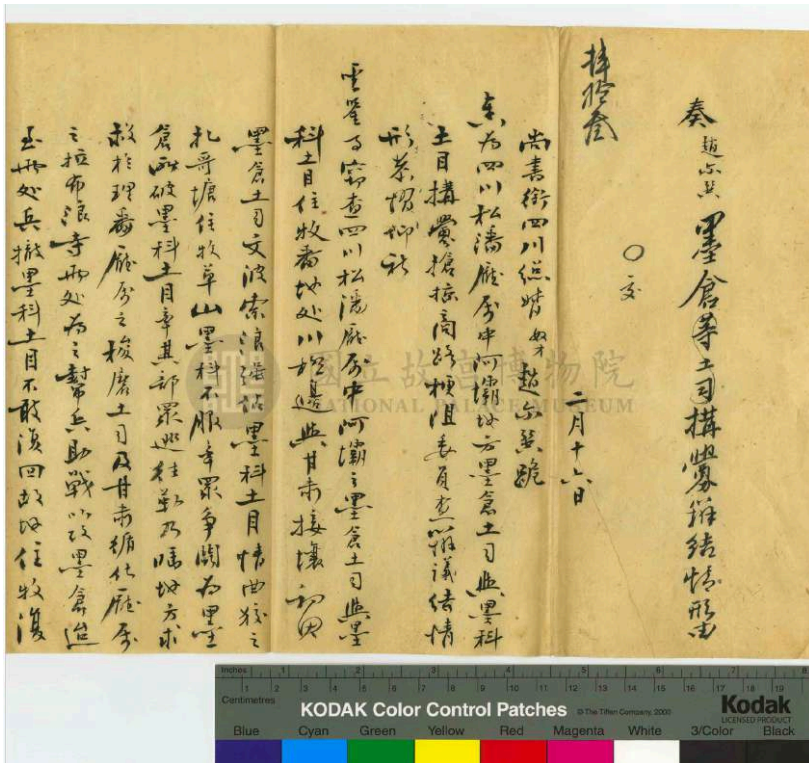 奏 趙尔巽 墨倉等土司搆釁辦結情形由
〇交
二月十六日
拝拾叁
尚書銜四川總督奴才趙尔巽跪
奏為四川松潘廳属中阿壩地方墨倉土司與墨科
土目搆釁搶掠商路梗阻委員查辦議結情
形恭摺仰祈
聖鑒事竊查四川松潘廳属中阿壩之墨倉土司與墨
科土目住牧番地处川極邊與甘肅接壤初因
墨倉土司文波索浪強佔墨科土目情西狡之
扎哥塘住牧草山墨科不服率眾争鬭為墨
倉所破墨科土目率其部眾逃往勒乃瑪地方求
救於理番廳属之梭磨土司及甘肅循化廳属
之拉布浪寺两处為之幫兵助戰以攻墨倉迨
至两处兵撤墨科土目不敢復回故地住牧復
國立故宮博物院
NATIONAL PALACE MUSEUM
Inches 1 2 3 4 5 6 7 8
Centimetres 1 2 3 4 5 6 7 8 9 10 11 12 13 14 15 16 17 18 19
KODAK Color Control Patches © The Tiffen Company, 2000 Kodak
LICENSED PRODUCT
Blue Cyan Green Yellow Red Magenta White 3/Color Black